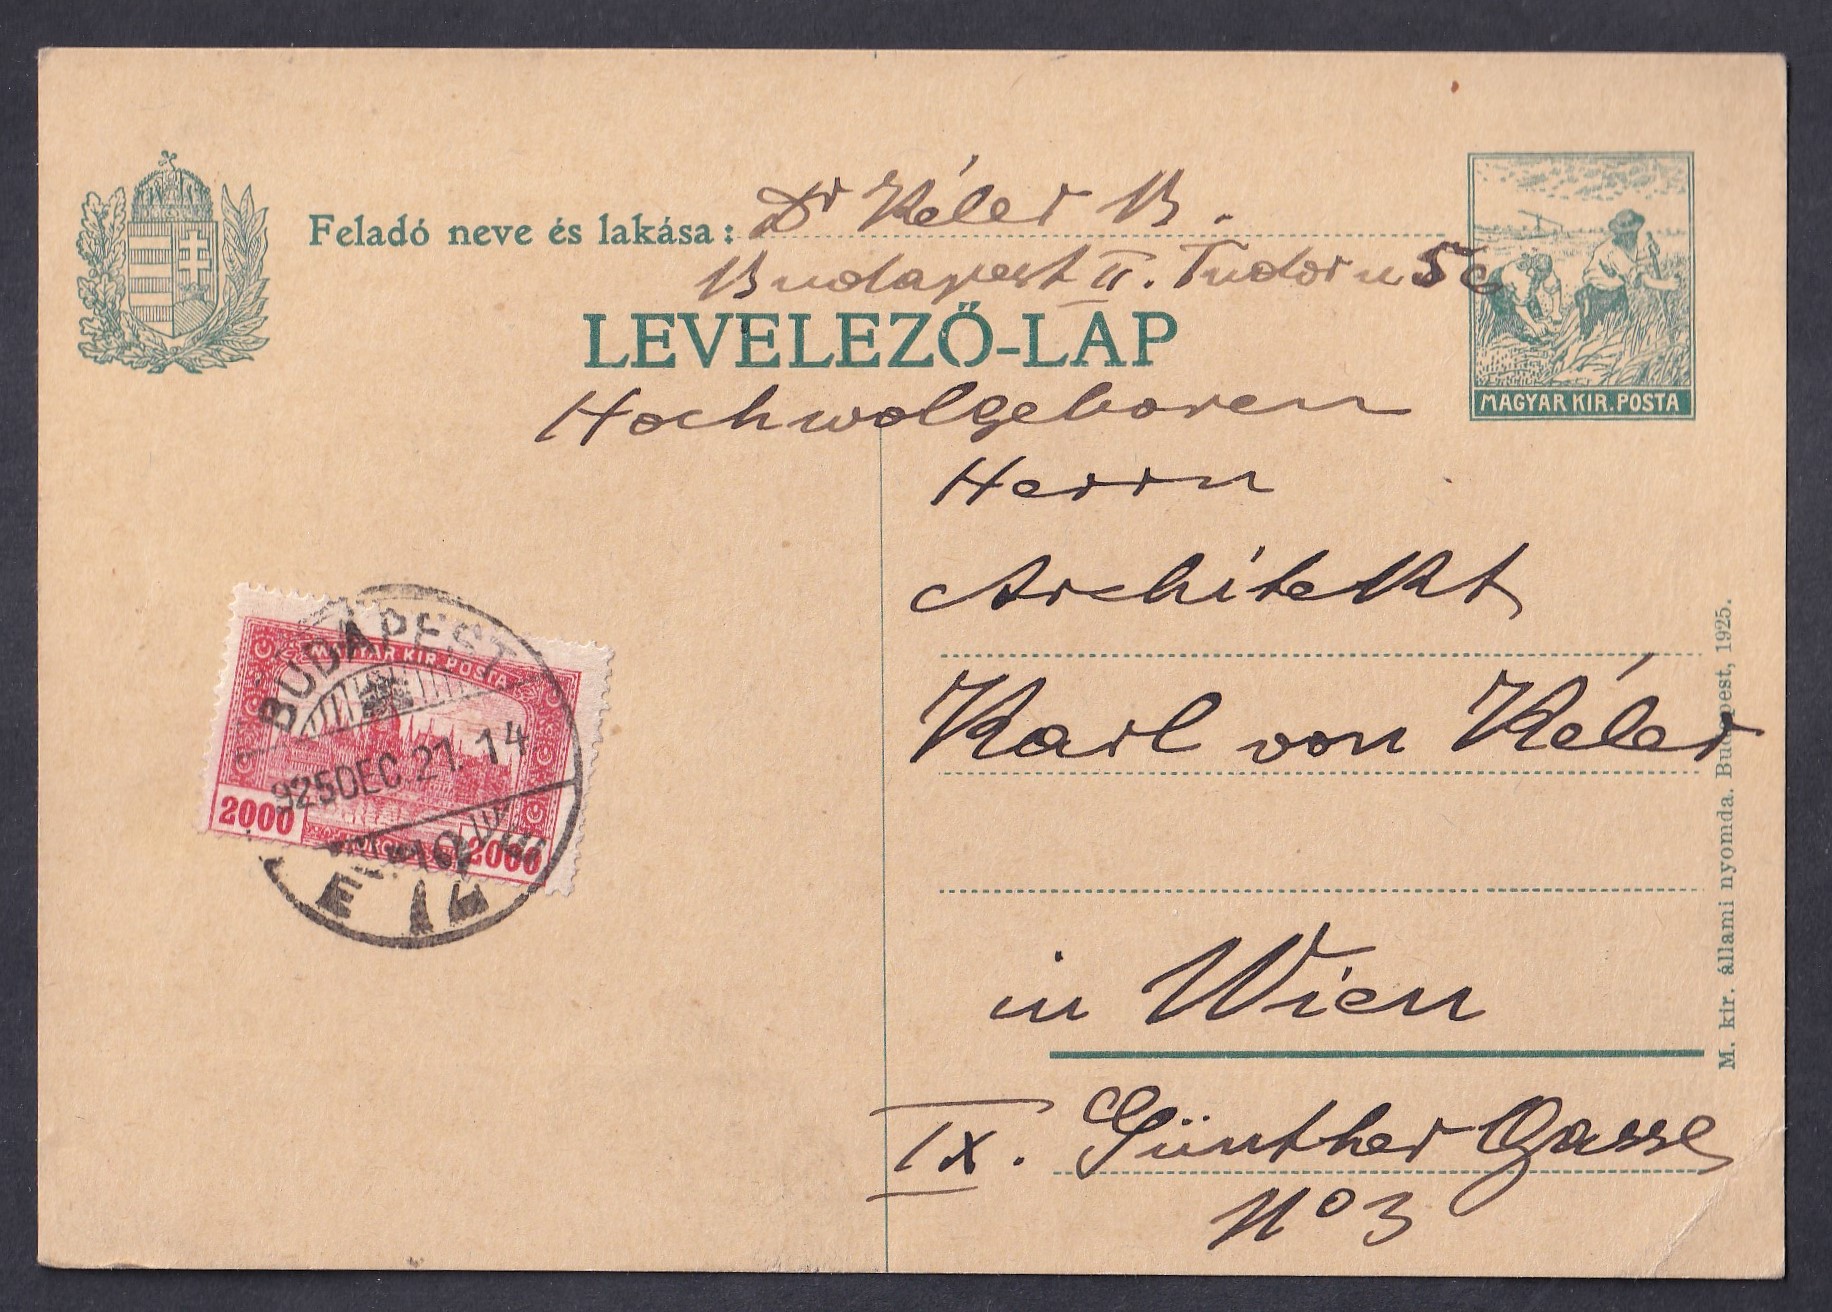 Feladó neve és lakása: Dr Kéler B.
Budapest II. Tudor u 5c
LEVELEZŐ-LAP
MAGYAR KIR. POSTA
Hochwolgeboren
Herrn
Architekt
Karl von Kéler
in Wien
IX. Günther Gasse
No 3
MAGYAR KIR. POSTA
2000
2000
BUDAPEST
925 DEC. 21. 14
M. kir. állami nyomda. Budapest, 1925.